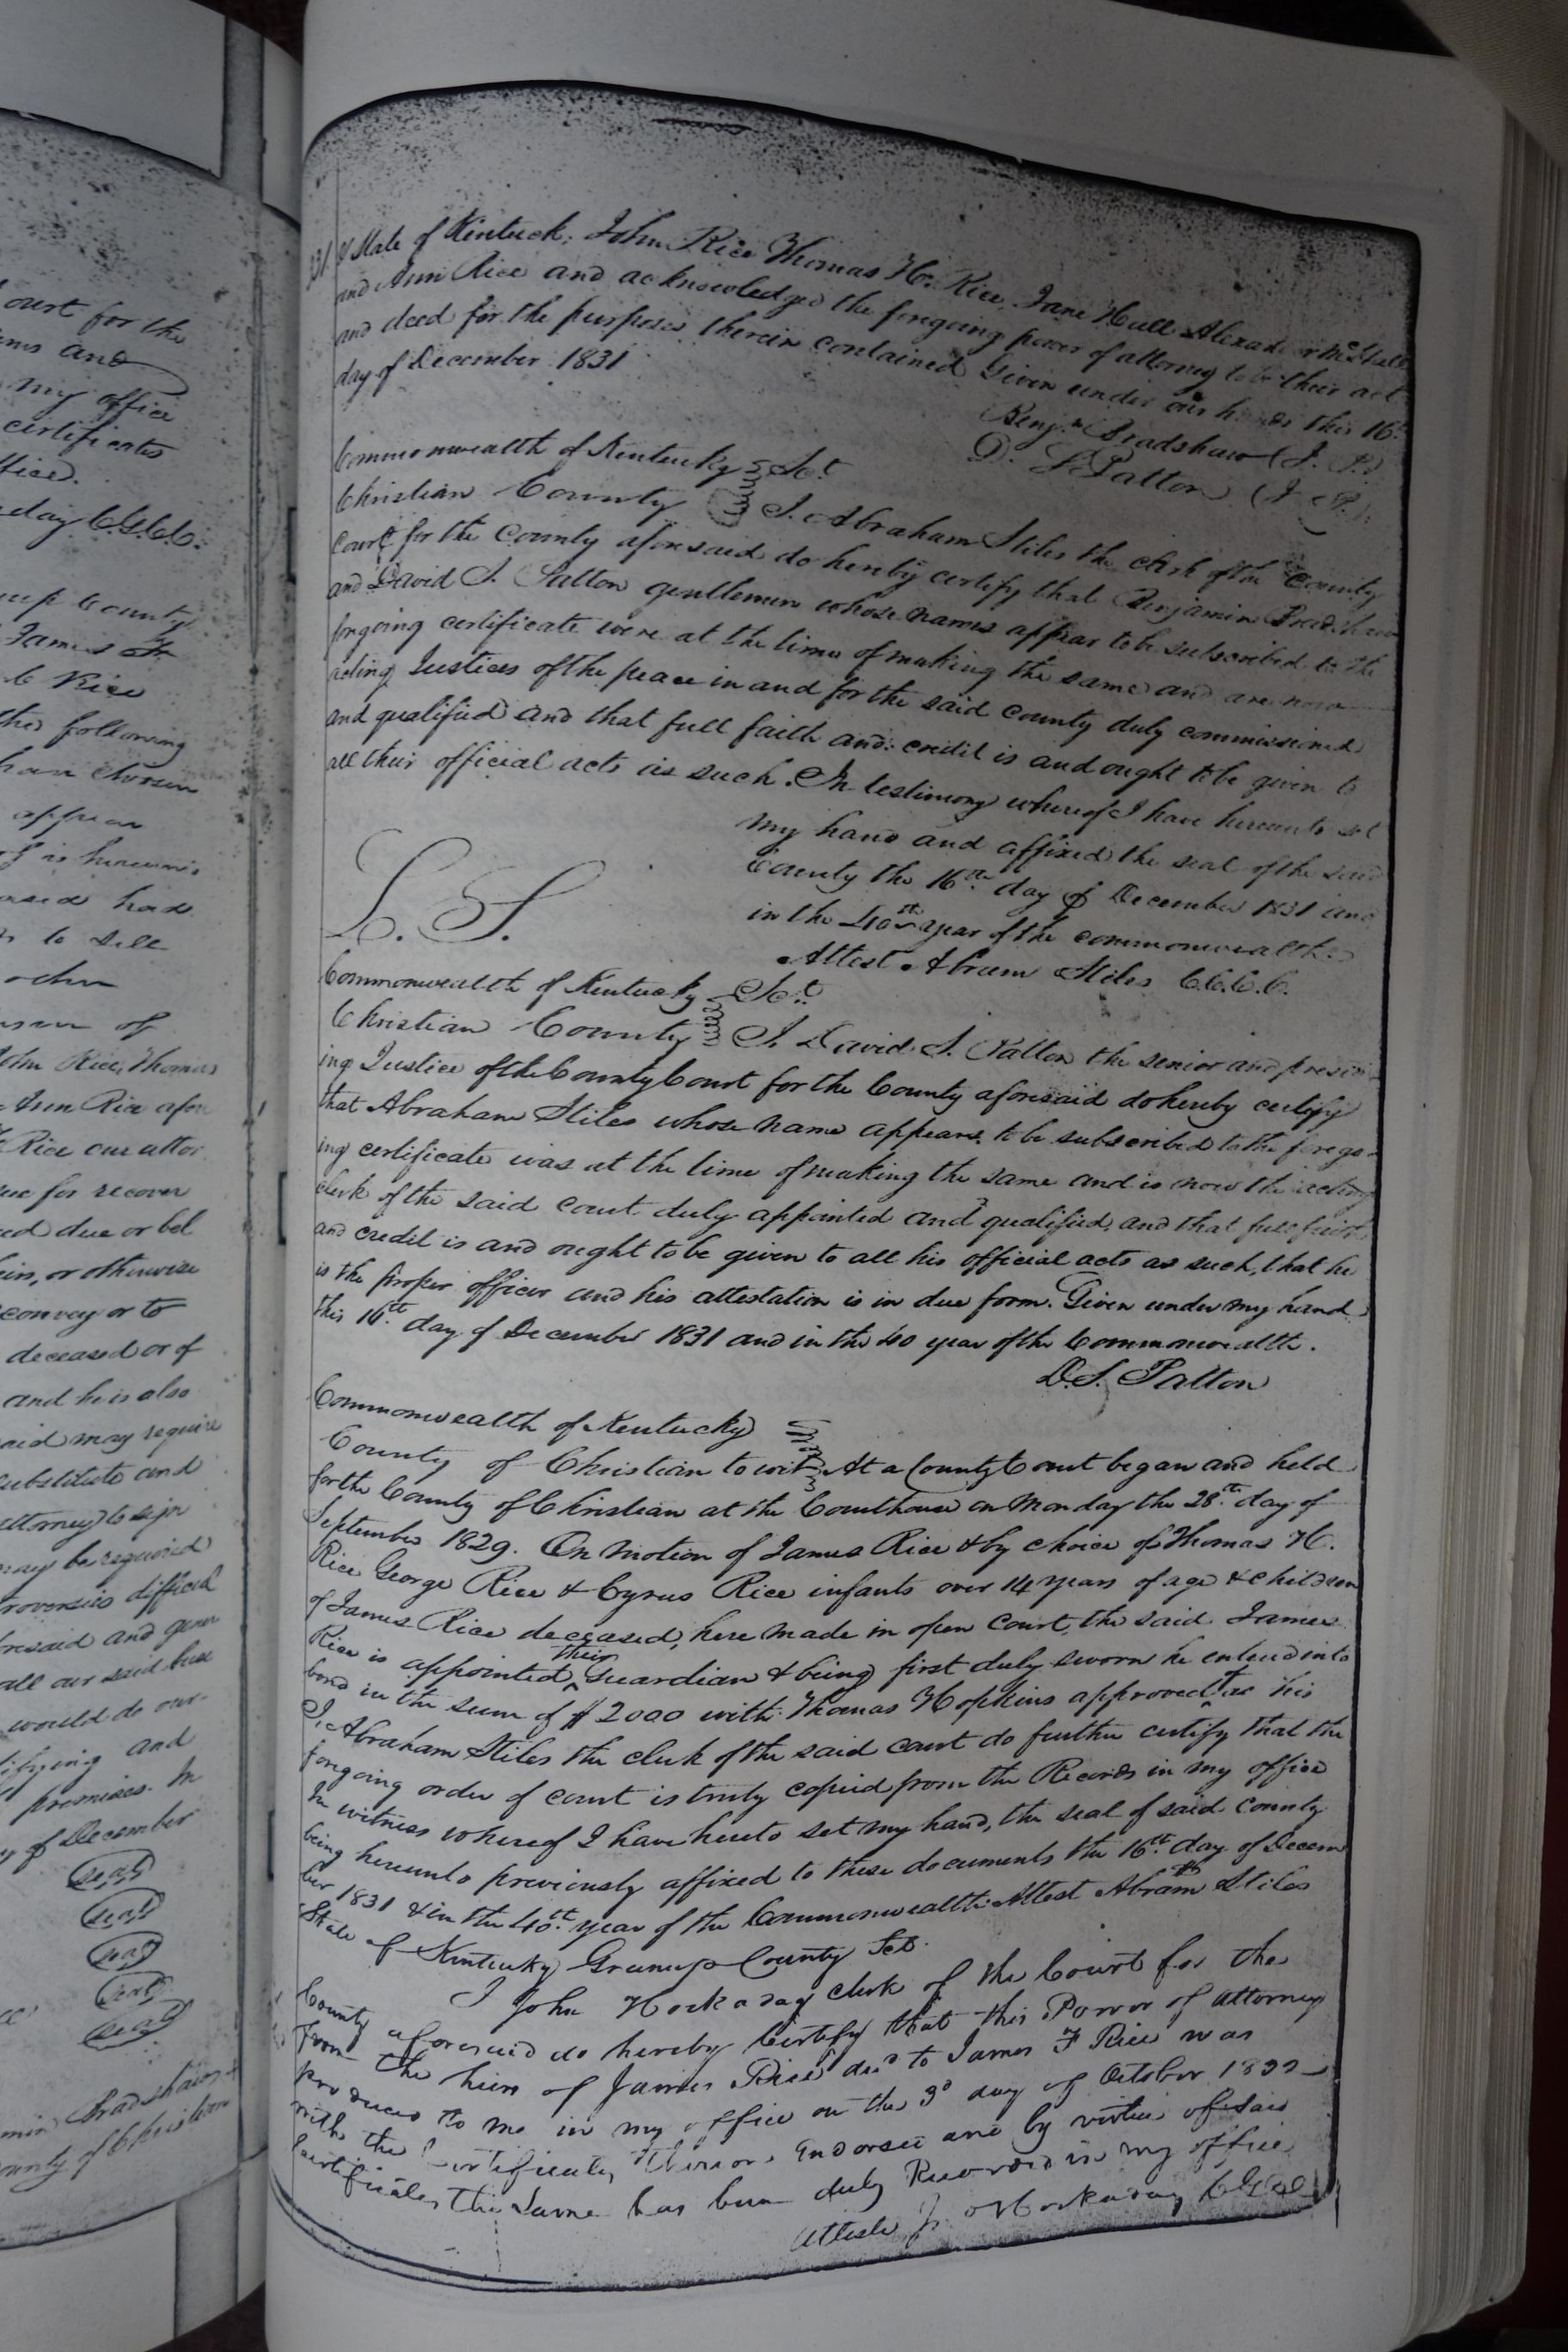 ourt for the
ms and
my office
certificates
ffice.
day C.G.C.C.
up County
James F
C Rice
the following
han chosen
appear
ased had
to sell
John
John Rice, Thomas
Ann Rice afore
Rice our attor
sue for recover
ed due or bel
eirs, or otherwise
convey or to
deceased or of
and he is also
said may require
substitute and
attorney to sign
may be required
roversies difficul
resaid and gener
all our said busi
would do our-
tifying and
premises. In
y of December
seal
seal
seal
seal
seal
min Bradshaw &
ounty of Christian
& State of Kentuck; John Rice Thomas H. Rice, Jane Hall Alexander McHall
and Ann Rice and acknowledged the forgoing power of attorney to be their act
and deed for the purposes therein contained Given under our hands this 16th
day of December 1831
Benj. Bradshaw (J. P.)
D. S. Patton (J. P.)
Commonwealth of Kentucky Sct
Christian County I. Abraham Stiles the clerk of the County
court for the County aforesaid do hereby certify that Benjamin Bradshaw
and David S. Patton gentlemen whose names appear to be subscribed to the
forgoing certificate were at the time of making the same and are now
acting Justices of the peace in and for the said county duly commissioned
and qualified and that full faith and credit is and ought to be given to
all their official acts as such. In testimony whereof I have hereunto set
my hand and affixed the seal of the said
County the 16th day of December 1831 and
in the 40th year of the commonwealth
L. S.
Attest Abram Stiles C.C.C.C.
Commonwealth of Kentucky Sct
Christian County I. David S. Patton the senior and presid
ing Justice of the County Court for the County aforesaid do hereby certify
that Abraham Stiles whose name appears to be subscribed to the forego
ing certificate was at the time of making the same and is now the acting
clerk of the said court duly appointed and qualified, and that full faith
and credit is and ought to be given to all his official acts as such, that he
is the proper officer and his attestation is in due form. Given under my hand
this 16th day of December 1831 and in the 40 year of the Commonwealth.
D. S. Patton
Commonwealth of Kentucky
County of Christian to wit At a County Court began and held
for the County of Christian at the Courthouse on Monday the 28th day of
September 1829. On motion of James Rice & by choice of Thomas H.
Rice George Rice & Cyrus Rice infants over 14 years of age & children
of James Rice deceased, here made in open court, the said James
Rice is appointed their Guardian & being first duly sworn he entered into
bond in the sum of $2000 with Thomas Hopkins approved as his
I, Abraham Stiles the clerk of the said court do further certify that the
forgoing order of court is truly copied from the Records in my office
In witness whereof I have hereto set my hand, the seal of said county
being hereunto previously affixed to these documents the 16th day of Decem
ber 1831 & in the 40th year of the Commonwealth Attest Abram Stiles
State of Kentucky Greenup County Sct.
I John Hockaday clerk of the Court for the
County aforesaid do hereby Certify that this Power of attorney
from the heirs of James Rice decd to James F Rice was
produced to me in my office on the 3d day of October 1832
with the Certificates thereon Endorsed and by virtue of said
Certificates, the Same has been duly Recorded in my office
Atteste J. Hockaday C.G.C.C.